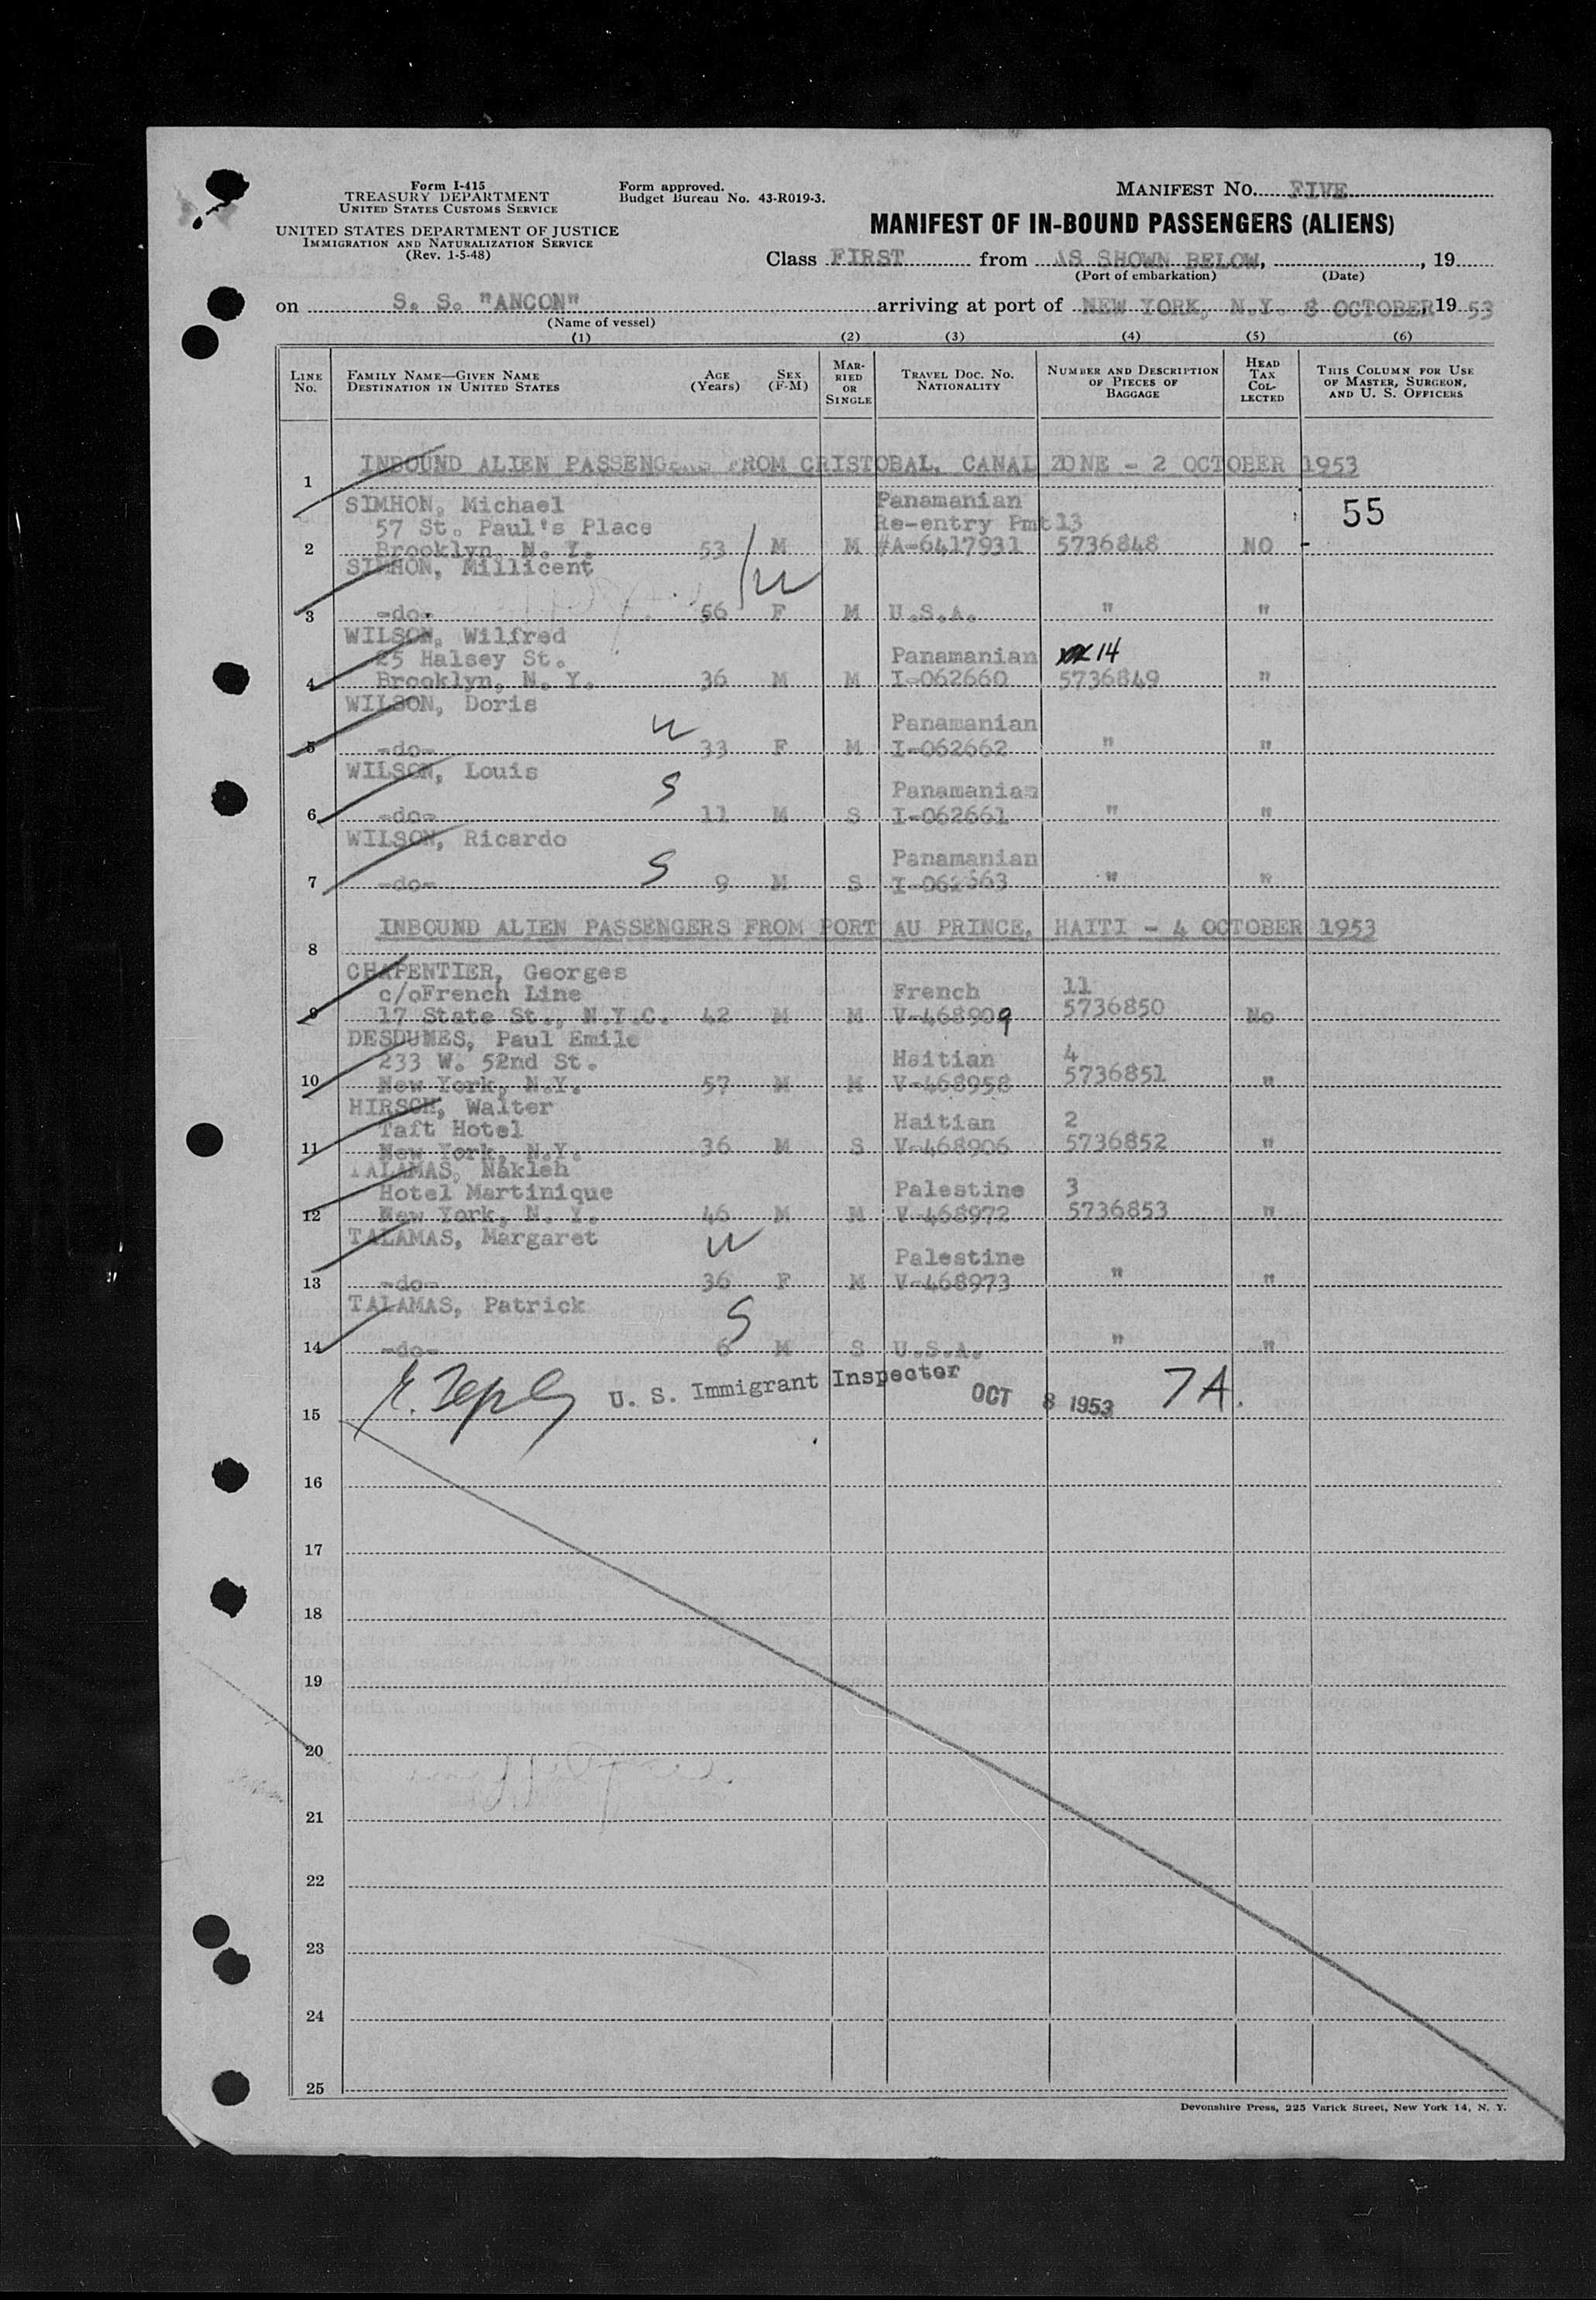 Form I-415
TREASURY DEPARTMENT
UNITED STATES CUSTOMS SERVICE
UNITED STATES DEPARTMENT OF JUSTICE
IMMIGRATION AND NATURALIZATION SERVICE
(Rev. 1-5-48)
Form approved.
Budget Bureau No. 43-R019-3.
MANIFEST NO. FIVE
MANIFEST OF IN-BOUND PASSENGERS (ALIENS)
Class FIRST from AS SHOWN BELOW, , 19
(Port of embarkation) (Date)
on S. S. "ANCON" arriving at port of NEW YORK, N.Y. 8 OCTOBER, 19 53
(Name of vessel)
(1) (2) (3) (4) (5) (6)
LINE NO. FAMILY NAME—GIVEN NAME DESTINATION IN UNITED STATES AGE (Years) SEX (F-M) MARRIED OR SINGLE TRAVEL DOC. NO. NATIONALITY NUMBER AND DESCRIPTION OF PIECES OF BAGGAGE HEAD TAX COLLECTED THIS COLUMN FOR USE OF MASTER, SURGEON, AND U. S. OFFICERS
1 INBOUND ALIEN PASSENGERS FROM CRISTOBAL, CANAL ZONE - 2 OCTOBER 1953
SIMHON, Michael Panamanian 55
57 St. Paul's Place Re-entry Pmt 13
2 Brooklyn, N. Y. 53 M M #A-6417931 5736848 NO
SIMHON, Millicent W
3 -do- 56 F M U.S.A. " "
WILSON, Wilfred
25 Halsey St. Panamanian 14
4 Brooklyn, N. Y. 36 M M I-062660 5736849 "
WILSON, Doris W Panamanian
5 -do- 33 F M I-062662 " "
WILSON, Louis S Panamanian
6 -do- 11 M S I-062661 " "
WILSON, Ricardo S Panamanian
7 -do- 9 M S I-062663 " "
8 INBOUND ALIEN PASSENGERS FROM PORT AU PRINCE, HAITI - 4 OCTOBER 1953
CHAPENTIER, Georges
c/oFrench Line French 11
9 17 State St., N.Y.C. 42 M M V-468909 5736850 No
DESDUMES, Paul Emile
233 W. 52nd St. Haitian 4
10 New York, N.Y. 57 M M V-468958 5736851 "
HIRSCH, Walter
Taft Hotel Haitian 2
11 New York, N.Y. 36 M S V-468906 5736852 "
TALAMAS, Nakleh
Hotel Martinique Palestine 3
12 New York, N. Y. 46 M M V-468972 5736853 "
TALAMAS, Margaret W Palestine
13 -do- 36 F M V-468973 " "
TALAMAS, Patrick S
14 -do- 6 M S U.S.A. " "
U. S. Immigrant Inspector OCT 8 1953 7A.
15
16
17
18
19
20
21
22
23
24
25
Devonshire Press, 225 Varick Street, New York 14, N. Y.